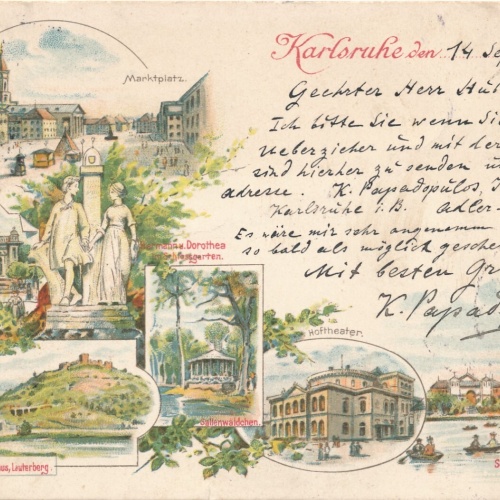 Karlsruhe den 14 Se
Marktplatz.
Geehrter Herr Hü
Ich bitte Sie wenn Si
Ueberzieher und mit der
sind hierher zu senden
adresse. K. Papadopúlos,
Karlsruhe i. B. Adler-
Es wäre mir sehr angenehm
so bald als möglich gesche
Mit besten Gr
K. Papad
Hermann u. Dorothea
Schlossgarten.
Hoftheater.
Sallenwäldchen.
us, Lauterberg.
S